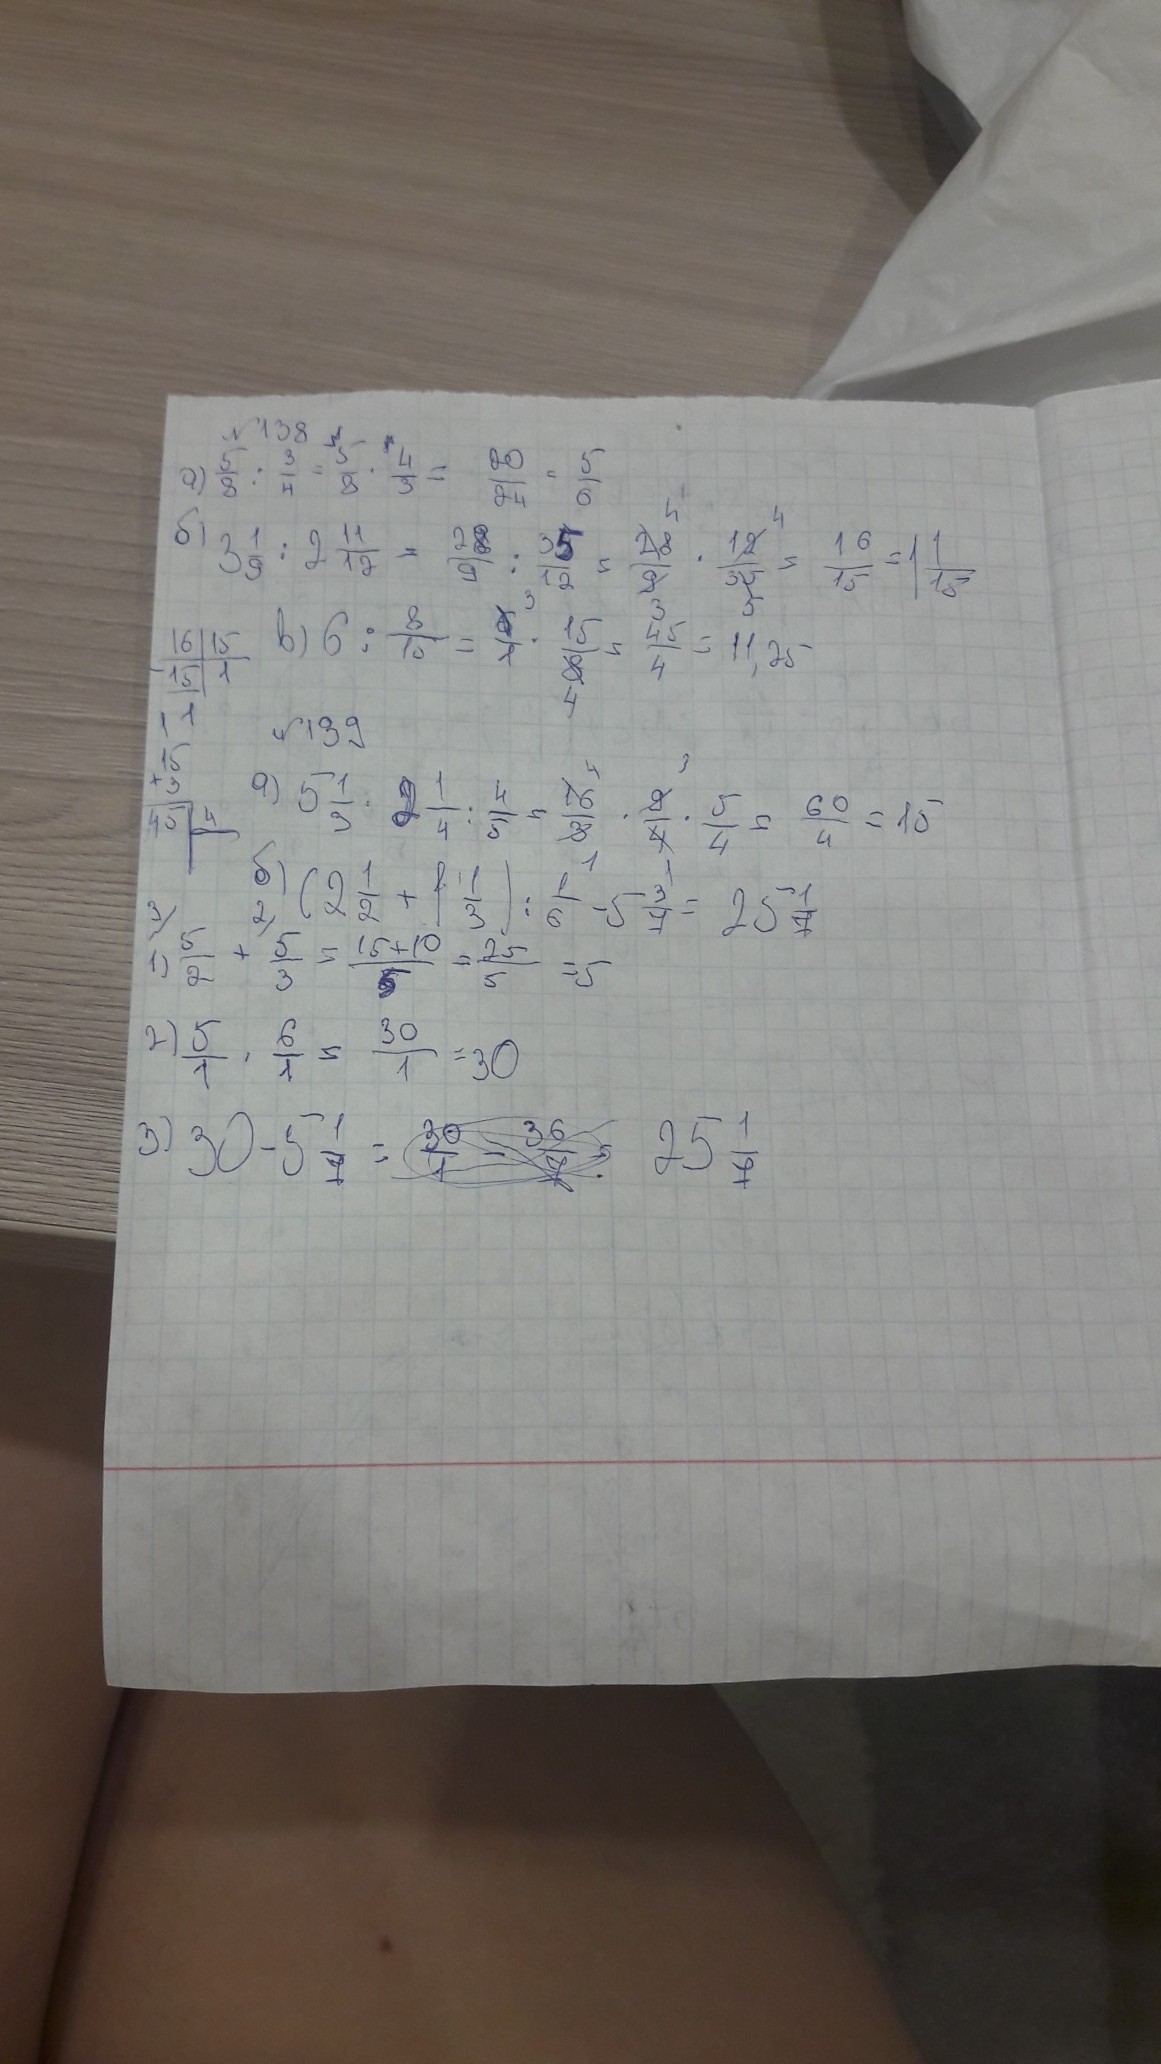 №138
а) 5/8 : 3/4 = 5/8 · 4/3 = 20/24 = 5/6
б) 3 1/9 : 2 11/12 = 28/9 : 35/12 = 28/9 · 12/35 = 16/15 = 1 1/15
16 | 15
15 | 1
1
в) 6 : 8/15 = 6/1 · 15/8 = 45/4 = 11,25
№139
15
3
45 | 4
а) 5 1/3 : 2 1/4 : 4/5 = 16/3 · 9/4 · 5/4 = 60/4 = 15
б) (2 1/2 + 1 1/3) : 1/6 - 5 3/7 = 25 1/7
1) 5/2 + 5/3 = 15+10/5 = 25/5 = 5
2) 5/1 · 6/1 = 30/1 = 30
3) 30 - 5 1/7 = 30/1 - 36/7 = 25 1/7